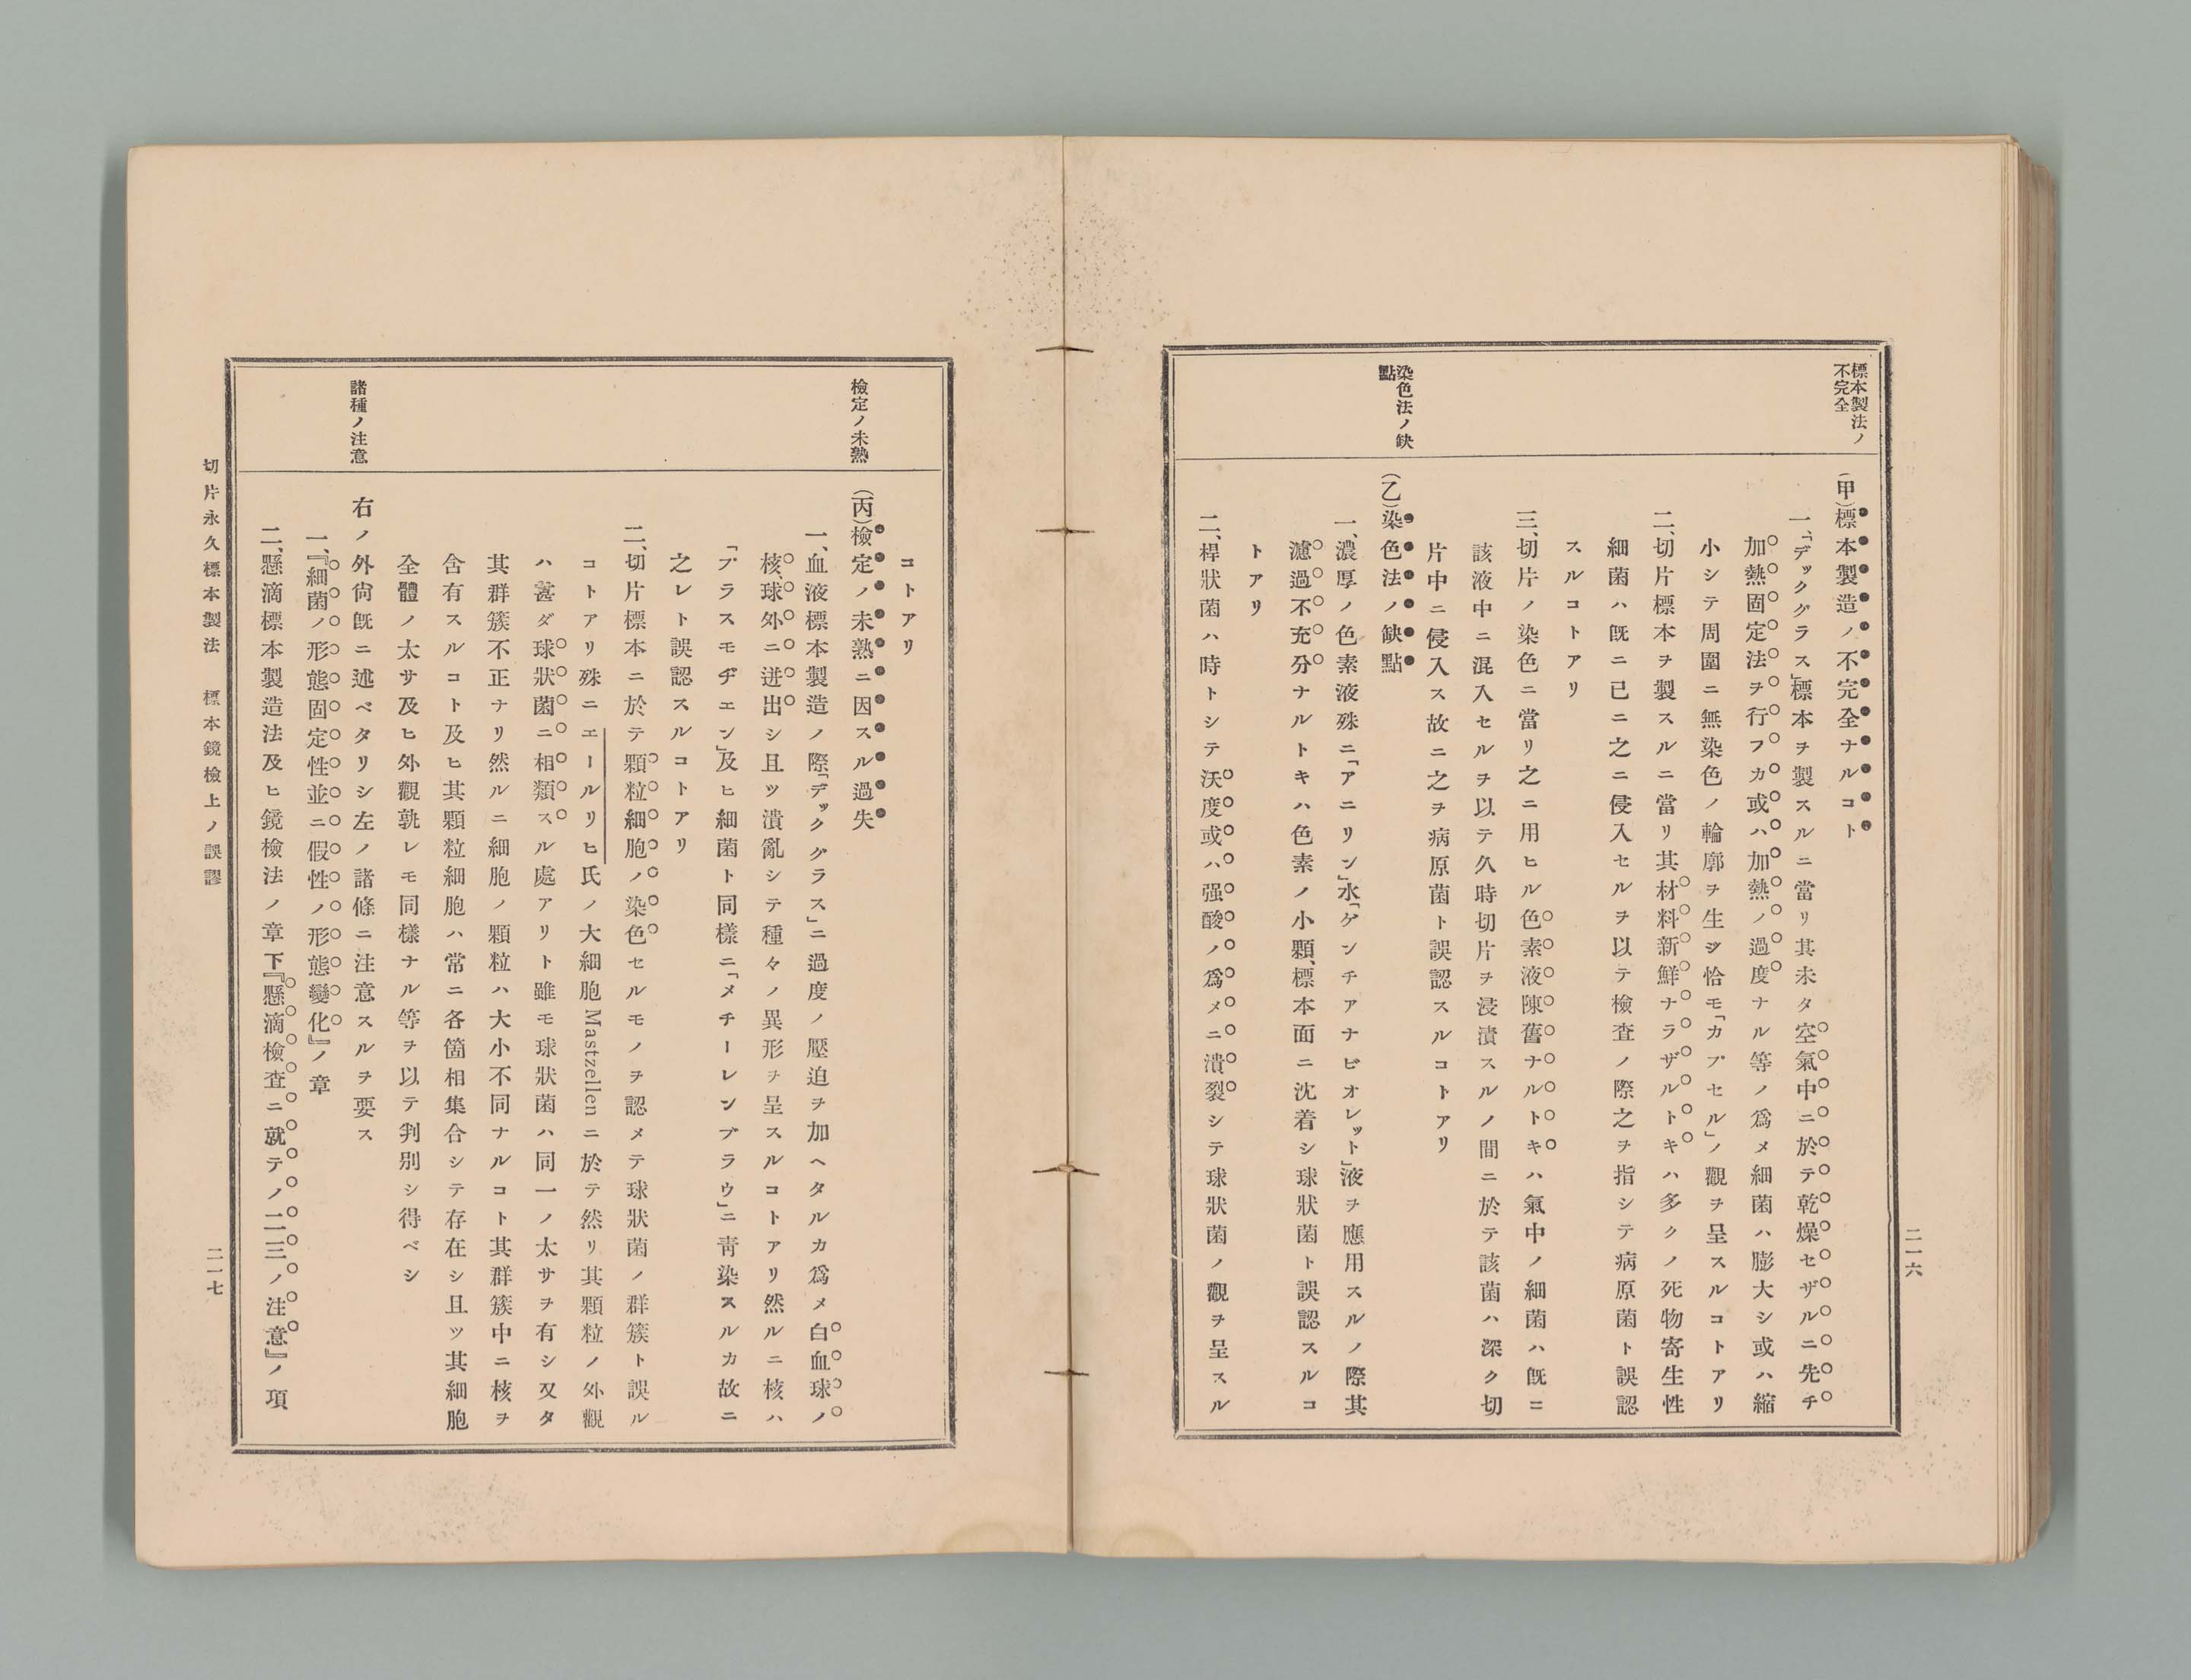 二一六
標本製法ノ
不完全
(甲)標本製造ノ不完全ナルコト
一、「デックグラス」標本ヲ製スルニ當リ其未タ空氣中ニ於テ乾燥セザルニ先チ
加熱固定法ヲ行フカ或ハ加熱ノ過度ナル等ノ爲メ細菌ハ膨大シ或ハ縮
小シテ周圍ニ無染色ノ輪廓ヲ生シ恰モ「カプセル」ノ觀ヲ呈スルコトアリ
二、切片標本ヲ製スルニ當リ其材料新鮮ナラザルトキハ多クノ死物寄生性
細菌ハ旣ニ已ニ之ニ侵入セルヲ以テ檢査ノ際之ヲ指シテ病原菌ト誤認
スルコトアリ
三、切片ノ染色ニ當リ之ニ用ヒル色素液陳舊ナルトキハ氣中ノ細菌ハ旣ニ
該液中ニ混入セルヲ以テ久時切片ヲ浸漬スルノ間ニ於テ該菌ハ深ク切
片中ニ侵入ス故ニ之ヲ病原菌ト誤認スルコトアリ
染色法ノ缺
點
(乙)染色法ノ缺點
一、濃厚ノ色素液殊ニ「アニリン」水「ゲンチアナビオレット」液ヲ應用スルノ際其
濾過不充分ナルトキハ色素ノ小顆、標本面ニ沈着シ球狀菌ト誤認スルコ
トアリ
二、桿狀菌ハ時トシテ沃度或ハ强酸ノ爲メニ潰裂シテ球狀菌ノ觀ヲ呈スル
コトアリ
檢定ノ未熟
(丙)檢定ノ未熟ニ因スル過失
一、血液標本製造ノ際「デックグラス」ニ過度ノ壓迫ヲ加ヘタルカ爲メ白血球ノ
核、球外ニ迸出シ且ツ潰亂シテ種々ノ異形ヲ呈スルコトアリ然ルニ核ハ
「プラスモヂエン」及ヒ細菌ト同樣ニ「メチーレンブラウ」ニ靑染スルカ故ニ
之レト誤認スルコトアリ
二、切片標本ニ於テ顆粒細胞ノ染色セルモノヲ認メテ球狀菌ノ群簇ト誤ル
コトアリ殊ニエールリヒ氏ノ大細胞Mastzellenニ於テ然リ其顆粒ノ外觀
ハ甚ダ球狀菌ニ相類スル處アリト雖モ球狀菌ハ同一ノ太サヲ有シ又タ
其群簇不正ナリ然ルニ細胞ノ顆粒ハ大小不同ナルコト其群簇中ニ核ヲ
含有スルコト及ヒ其顆粒細胞ハ常ニ各箇相集合シテ存在シ且ツ其細胞
全體ノ太サ及ヒ外觀孰レモ同樣ナル等ヲ以テ判別シ得ベシ
諸種ノ注意
右ノ外尙旣ニ述ベタリシ左ノ諸條ニ注意スルヲ要ス
一、『細菌ノ形態固定性並ニ假性ノ形態變化』ノ章
二、懸滴標本製造法及ヒ鏡檢法ノ章下『懸滴檢査ニ就テノ一二三ノ注意』ノ項
切片永久標本製法 標本鏡檢上ノ誤謬
二一七